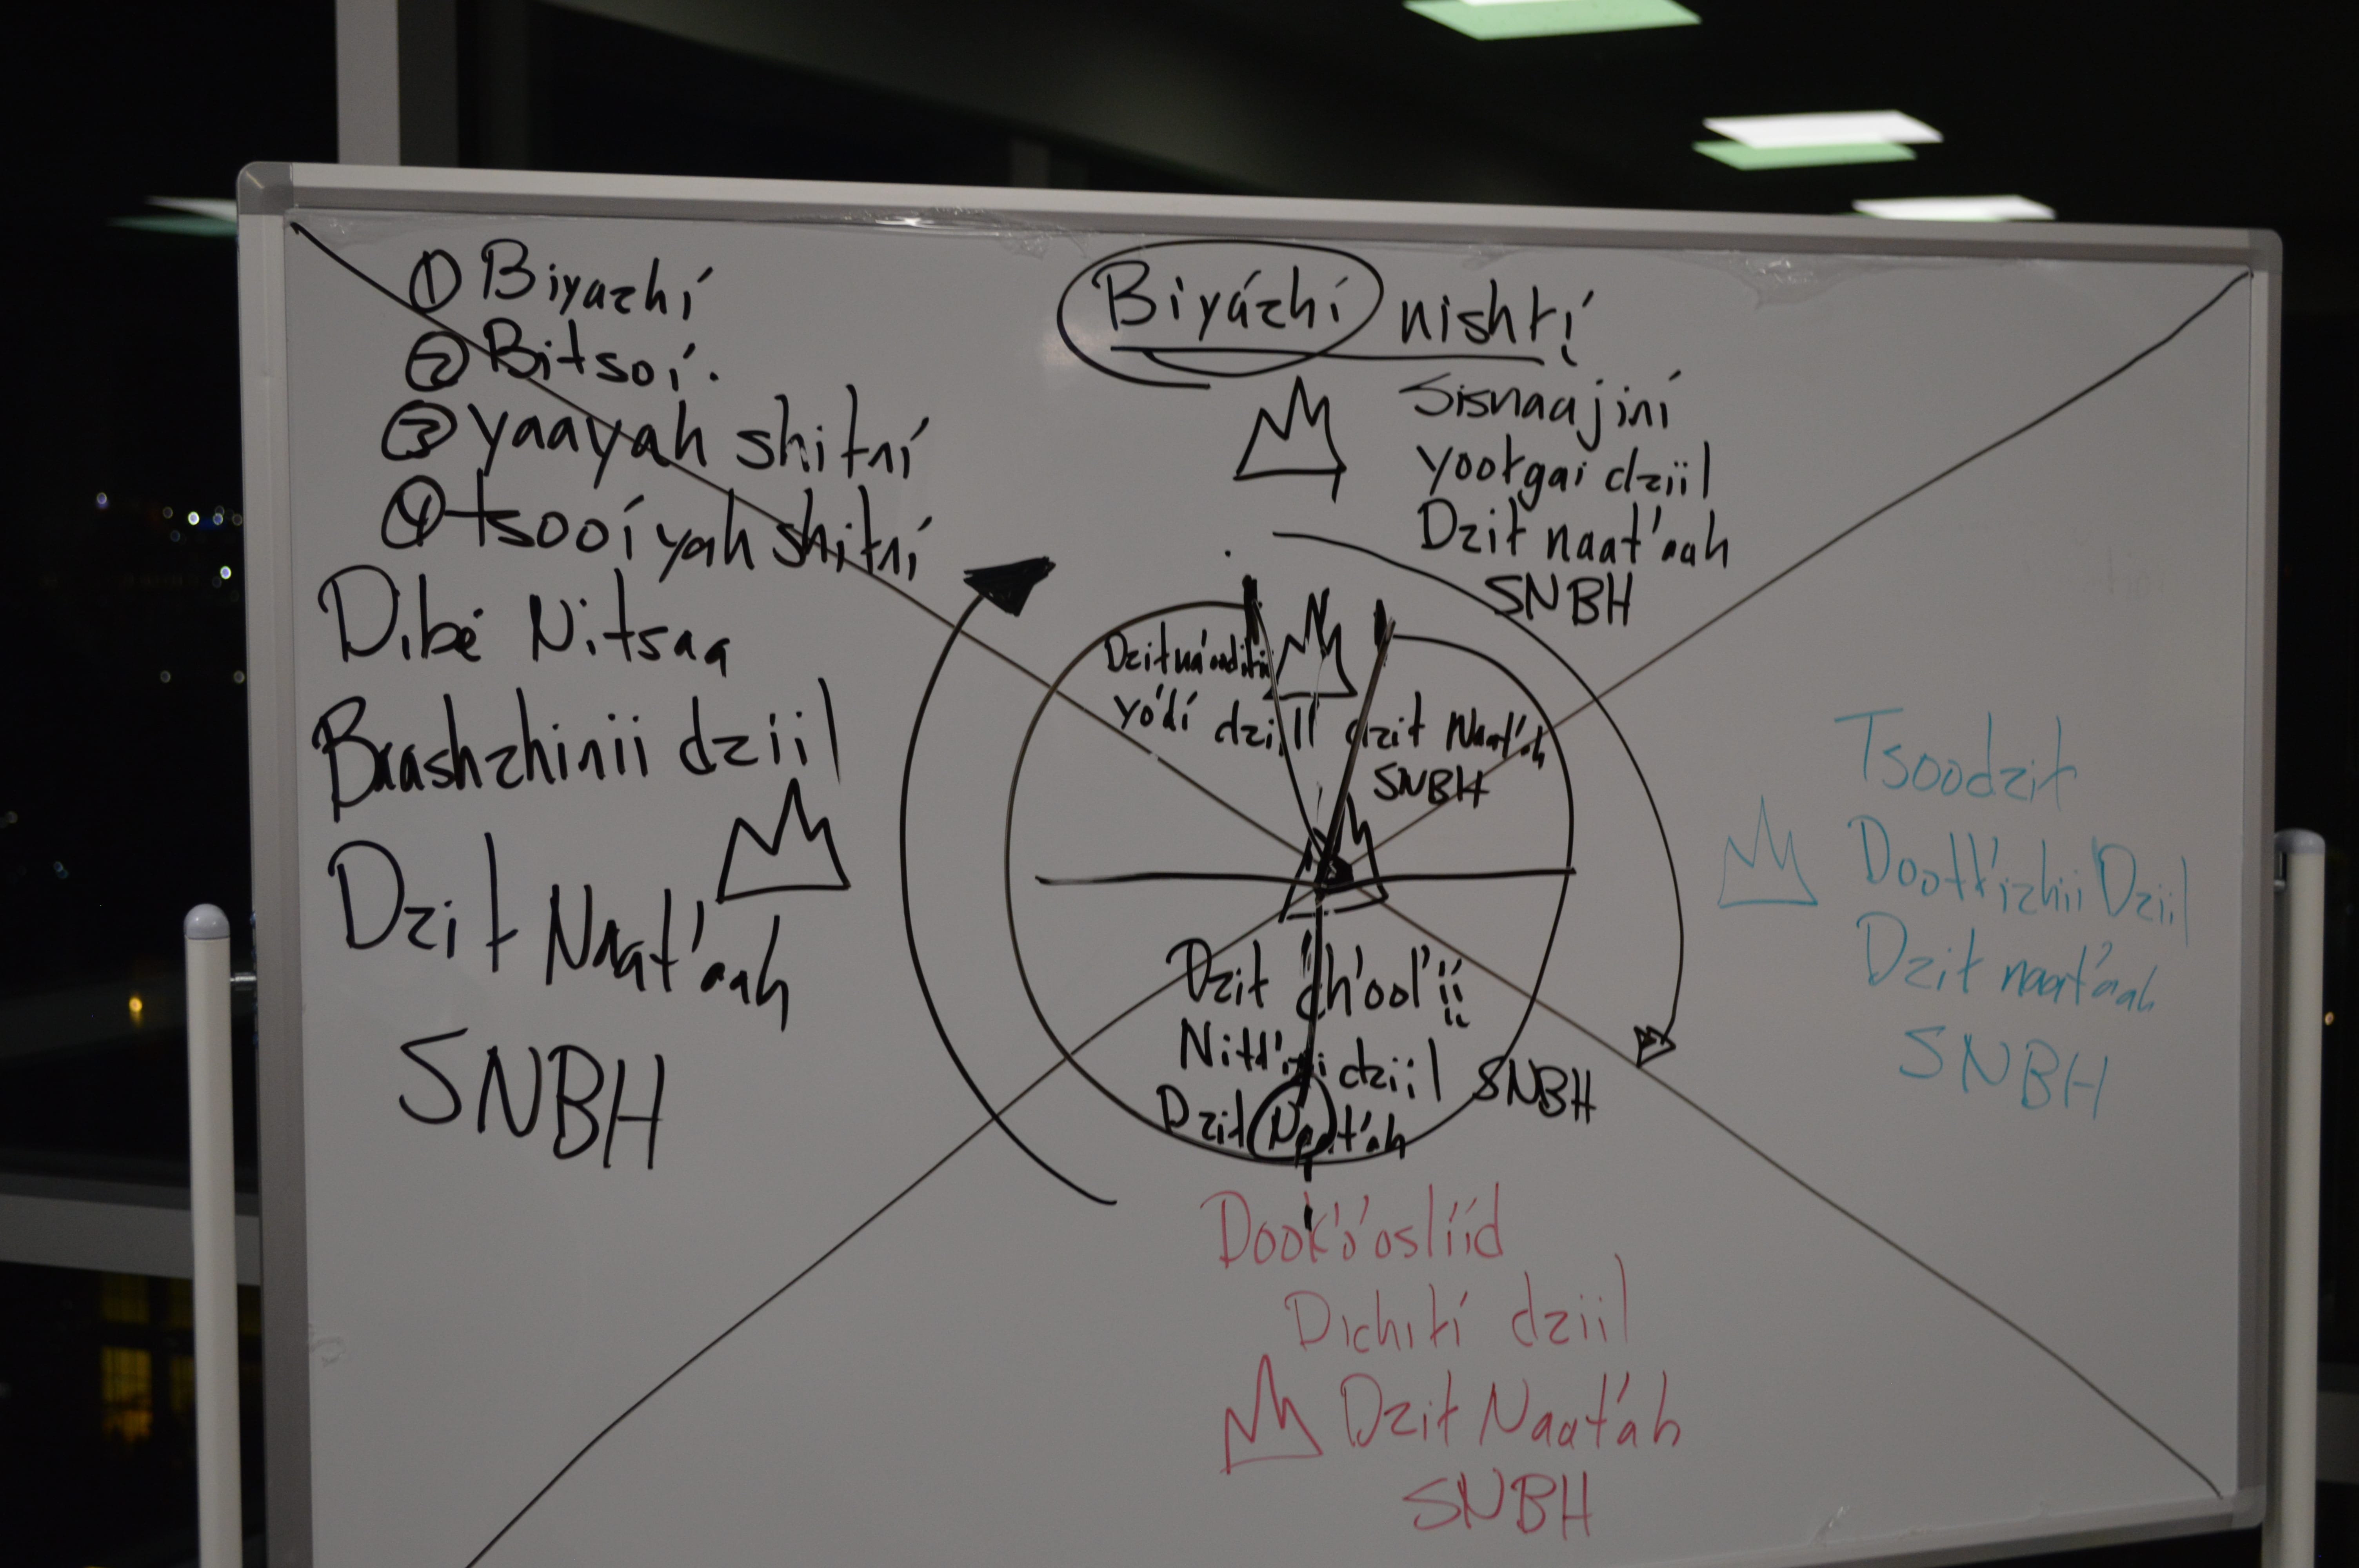 ① Biyazhí
② Bitsoí.
③ yaayah shiłní
④ tsooíyah shiłní
Dibé Nitsaa
Baashzhinii dziil
Dził Naat'aah
SNBH
Biyázhí nishłį́
Sisnaajiní
yoołgai dziil
Dził naat'aah
SNBH
Dziłná'oodiłii
yódí dziil dził Naat'ah
SNBH
Dził Ch'ool'į́į́
dziil SNBH
Dził Naat'ah
Tsoodził
Dootł'izhii Dziil
Dził naat'aah
SNBH
Dook'o'oslííd
Dichiłí dziil
Dził Naat'ah
SNBH